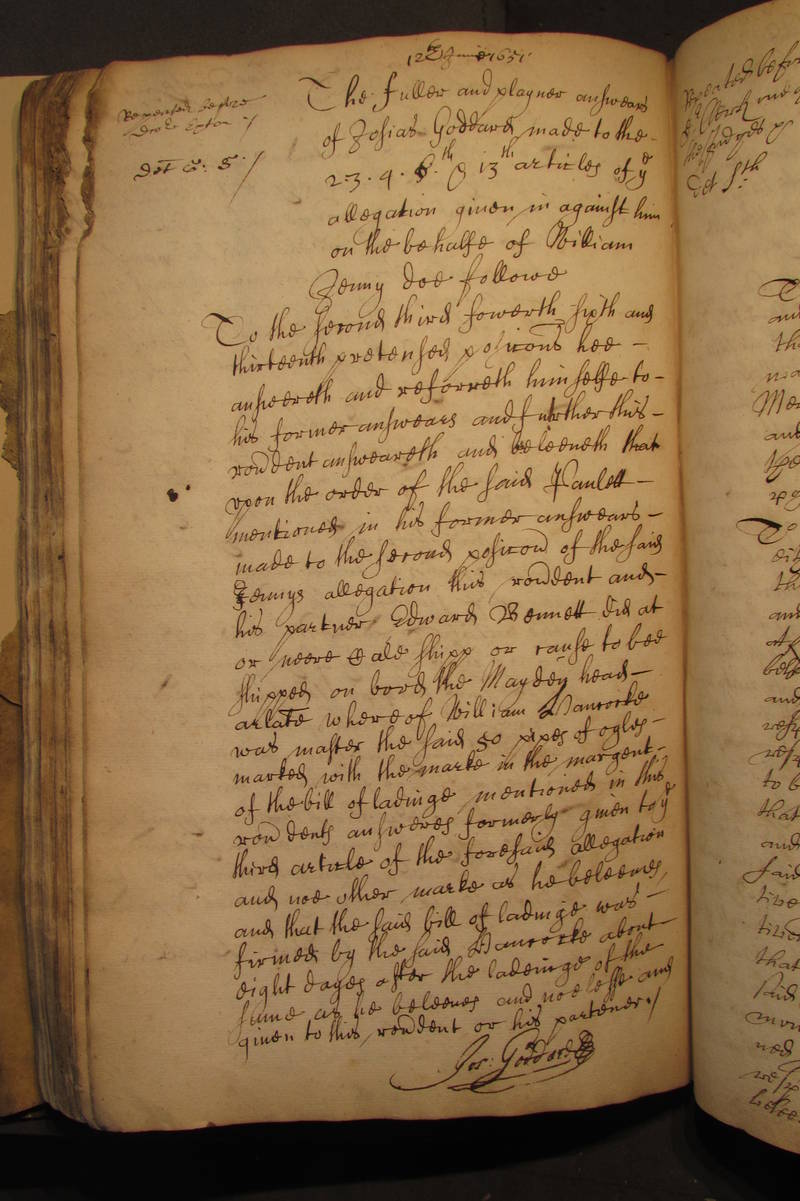 12th June 1651
Repeated before
Doctr
Dot S: S: /
The fuller and playner answears
of Josias Goddard made to the
2. 3. 4. 6.th & 13th articles of ye
allegation given in against him
on the behalfe of William
Jenny doe followe
To the second third fowerth sixth and
thirteenth pretensed posicons hee
answereth and referreth himselfe to
his former answears and further this
rondent answeareth and beleeveth that
upon the order of the said Paulett
mentioned in his former answears
made to the second posicon of the said
Jennys allegation this rondent and
his partner Edward Bennett did at
or neere Cale shipp or cause to bee
shipped on bord the Mayden head
arlate whereof William Hancocke
was master the said 50 pipes of oyles
marked with the marke in the margent
of the bill of ladinge mentioned in this
rondents answeres formerly given to ye
third article of the foresaid allegation
and noe other marke as he beleeves,
and that the said bill of ladinge was
firmed by the said Hancocke about
eight dayes after the ladeinge of the
same as he beleeves and noe lesse and
given to this rondent or his partener. /
Jos: Goddard
Repeated before
Det Sth
To
and
the
Mea
and
the
To
eit
tha
and
and
to b
that
and
said
tive
that
said
ned